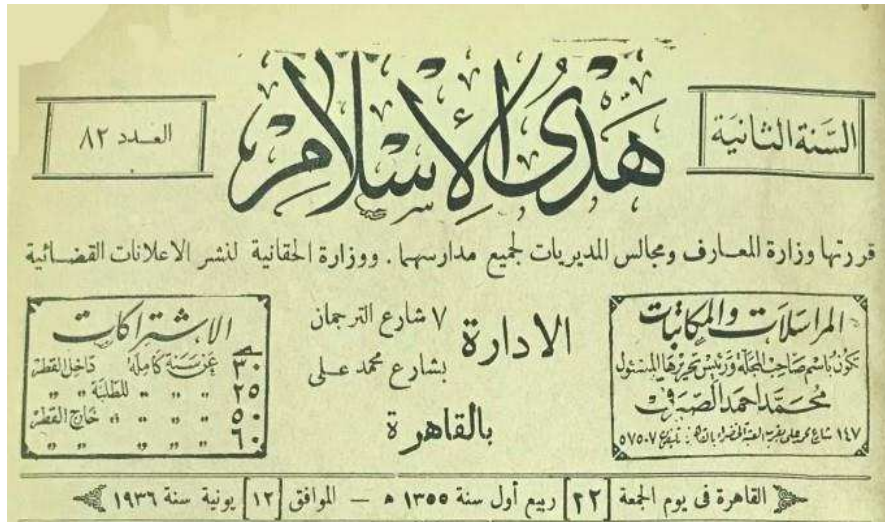 السَّنة الثانية
هُدَى الإِسْلام
العـدد ٨٢
قررتها وزارة المعـارف ومجالس المديريات لجميع مدارسهـا . ووزارة الحقانية لنشر الاعلانات القضـائية
المراسلات والمكاتبات
تكون باسم صاحب المجلة ورئيس تحريرها المسئول
محمد احمد الصيرفى
١٤٧ شارع محمد على بقرب العتبة الخضراء بالقاهرة تليفون ٥٧٥٠٧
الادارة
٧ شارع الترجمان
بشارع محمد عـلى
بالقاهرة
الاشتراكات
٣٠ عن سنة كاملة داخل القطر
٢٥ " " " للطلبة " "
٥٠ " " " خارج القطر
٦٠ " " " " "
القاهرة فى يوم الجمعة [٢٢] ربيع أول سنة ١٣٥٥ ه — الموافق [١٢] يونية سنة ١٩٣٦